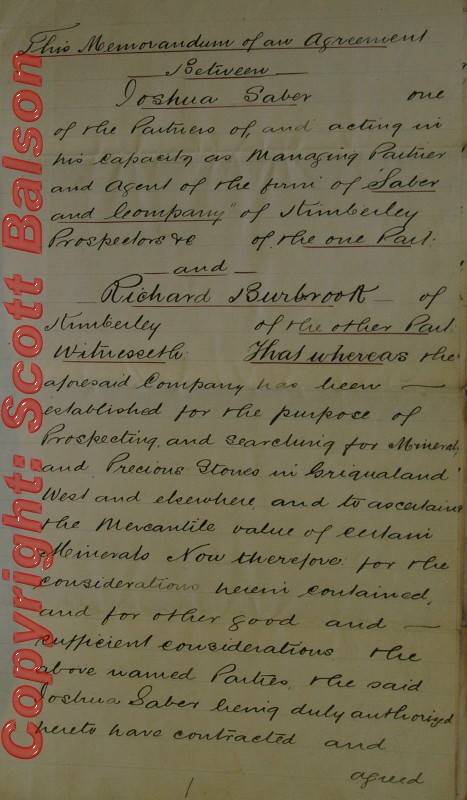 This Memorandum of an Agreement
Between
Joshua Saber one
of the Partners of, and acting in
his capacity as Managing Partner
and Agent of the firm of "Saber
and Company" of Kimberley
Prospectors &c of the one Part.
and
Richard Burbrook of
Kimberley of the other Part
Witnesseth That whereas the
aforesaid Company has been
established for the purpose of
Prospecting and searching for Minerals
and Precious Stones in Griqualand
West and elsewhere and to ascertaine
the Mercantile value of certain
Minerals Now therefore for the
considerations herein contained,
and for other good and
sufficient considerations the
above named Parties, the said
Joshua Saber being duly authorized
hereto have contracted and
agreed
1
Copyright: Scott Balson